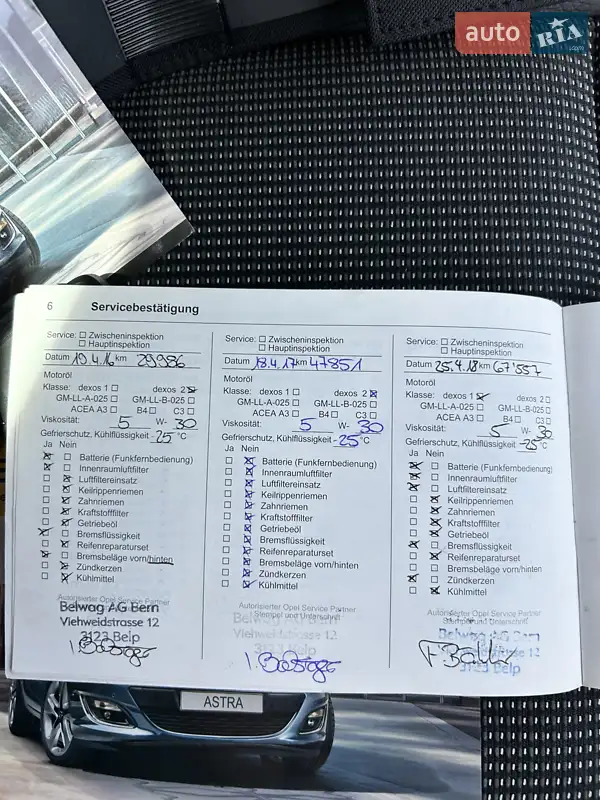 auto RIA .com
6 Servicebestätigung
Service: Zwischeninspektion
Hauptinspektion
Datum 19.4.16 km 29986
Motoröl
Klasse: dexos 1 dexos 2
GM-LL-A-025 GM-LL-B-025
ACEA A3 B4 C3
Viskosität: 5 W- 30
Gefrierschutz, Kühlflüssigkeit -25 °C
Ja Nein
Batterie (Funkfernbedienung)
Innenraumluftfilter
Luftfiltereinsatz
Keilrippenriemen
Zahnriemen
Kraftstofffilter
Getriebeöl
Bremsflüssigkeit
Reifenreparaturset
Bremsbeläge vorn/hinten
Zündkerzen
Kühlmittel
Autorisierter Opel Service Partner
Belwag AG Bern
Viehweidstrasse 12
3123 Belp
Service: Zwischeninspektion
Hauptinspektion
Datum 18.4.17 km 47851
Motoröl
Klasse: dexos 1 dexos 2
GM-LL-A-025 GM-LL-B-025
ACEA A3 B4 C3
Viskosität: 5 W- 30
Gefrierschutz, Kühlflüssigkeit -25 °C
Ja Nein
Batterie (Funkfernbedienung)
Innenraumluftfilter
Luftfiltereinsatz
Keilrippenriemen
Zahnriemen
Kraftstofffilter
Getriebeöl
Bremsflüssigkeit
Reifenreparaturset
Bremsbeläge vorn/hinten
Zündkerzen
Kühlmittel
Autorisierter Opel Service Partner
Stempel und Unterschrift
Belwag AG Bern
Viehweidstrasse 12
3123 Belp
Service: Zwischeninspektion
Hauptinspektion
Datum 25.4.18 km 67'557
Motoröl
Klasse: dexos 1 dexos 2
GM-LL-A-025 GM-LL-B-025
ACEA A3 B4 C3
Viskosität: 5 W- 30
Gefrierschutz, Kühlflüssigkeit -25 °C
Ja Nein
Batterie (Funkfernbedienung)
Innenraumluftfilter
Luftfiltereinsatz
Keilrippenriemen
Zahnriemen
Kraftstofffilter
Getriebeöl
Bremsflüssigkeit
Reifenreparaturset
Bremsbeläge vorn/hinten
Zündkerzen
Kühlmittel
Autorisierter Opel Service Partner
Stempel und Unterschrift
Belwag AG Bern
12
3123 Belp
ASTRA